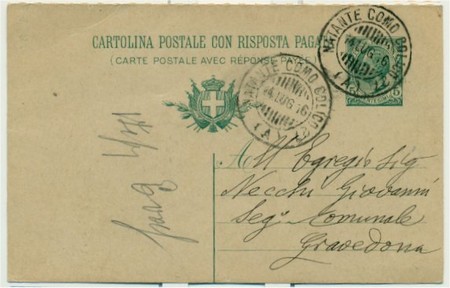 CARTOLINA POSTALE CON RISPOSTA PAGA
(CARTE POSTALE AVEC RÉPONSE PAYÉE
NATANTE COMO COLICO
14 LUG 16
(A)
NATANTE COMO COLICO
14 LUG 16
(A)
All' Egregio Sig
Necchi Giovanni
Seg. Comunale
Gravedona